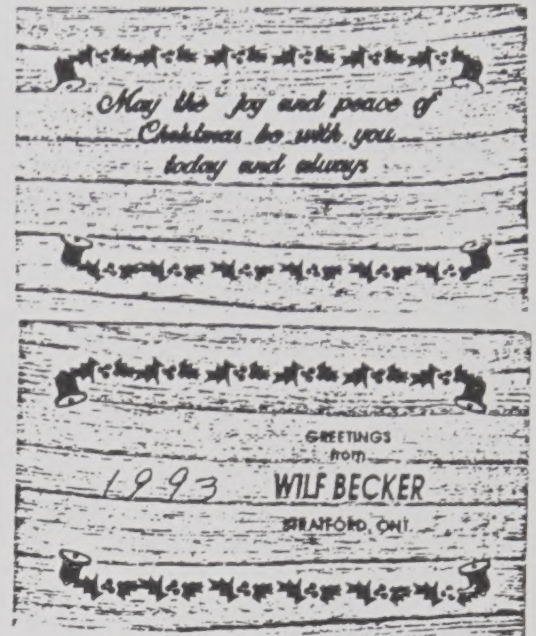 May the joy and peace of
Christmas be with you
today and always
GREETINGS
from
1993 WILF BECKER
STRATFORD, ONT.